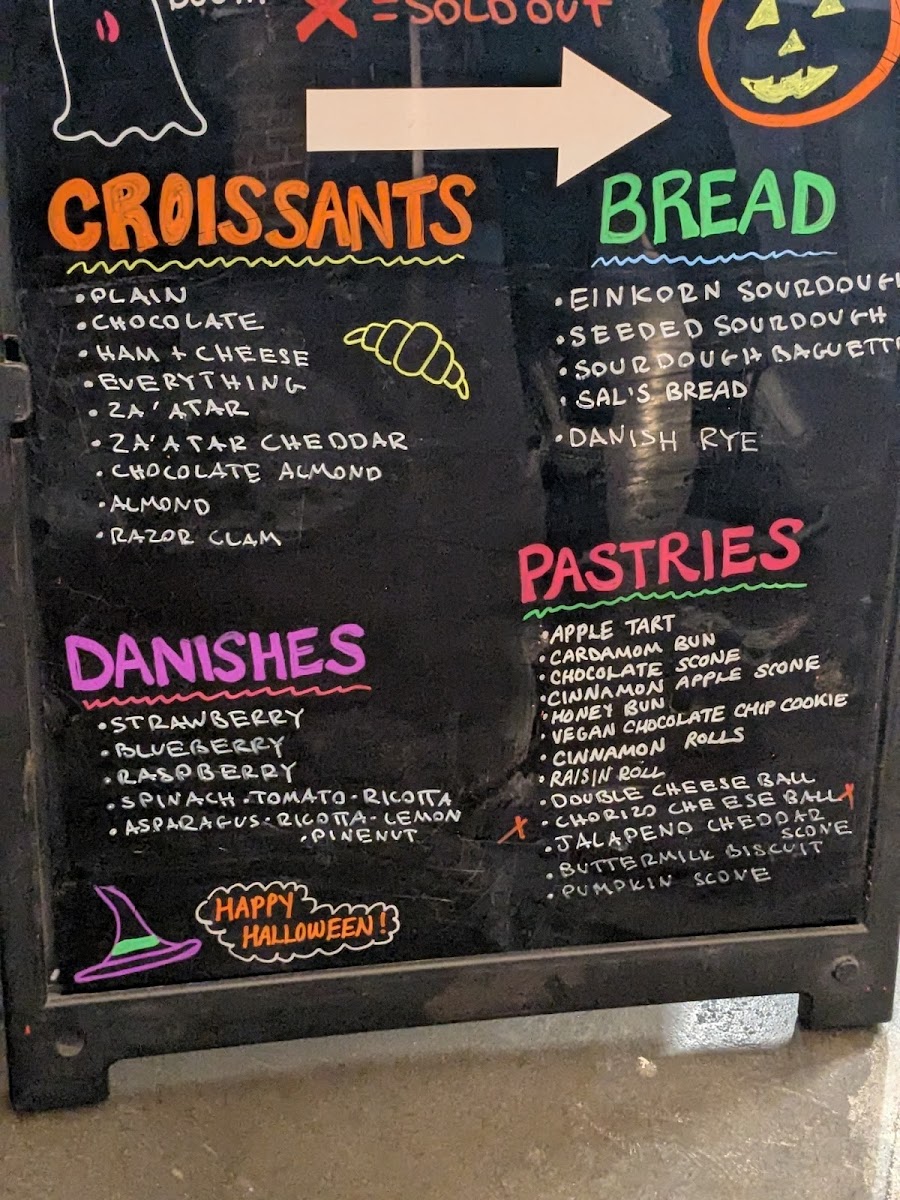 = SOLD OUT
CROISSANTS
• PLAIN
• CHOCOLATE
• HAM + CHEESE
• EVERYTHING
• ZA'ATAR
• ZA'ATAR CHEDDAR
• CHOCOLATE ALMOND
• ALMOND
• RAZOR CLAM
DANISHES
• STRAWBERRY
• BLUEBERRY
• RASPBERRY
• SPINACH · TOMATO · RICOTTA
• ASPARAGUS · RICOTTA · LEMON
· PINENUT
HAPPY
HALLOWEEN!
BREAD
• EINKORN SOURDOUGH
• SEEDED SOURDOUGH
• SOURDOUGH BAGUETTE
• SAL'S BREAD
• DANISH RYE
PASTRIES
• APPLE TART
• CARDAMOM BUN
• CHOCOLATE SCONE
• CINNAMON APPLE SCONE
• HONEY BUN
• VEGAN CHOCOLATE CHIP COOKIE
• CINNAMON ROLLS
• RAISIN ROLL
• DOUBLE CHEESE BALL
• CHORIZO CHEESE BALL X
X • JALAPENO CHEDDAR
SCONE
• BUTTERMILK BISCUIT
• PUMPKIN SCONE